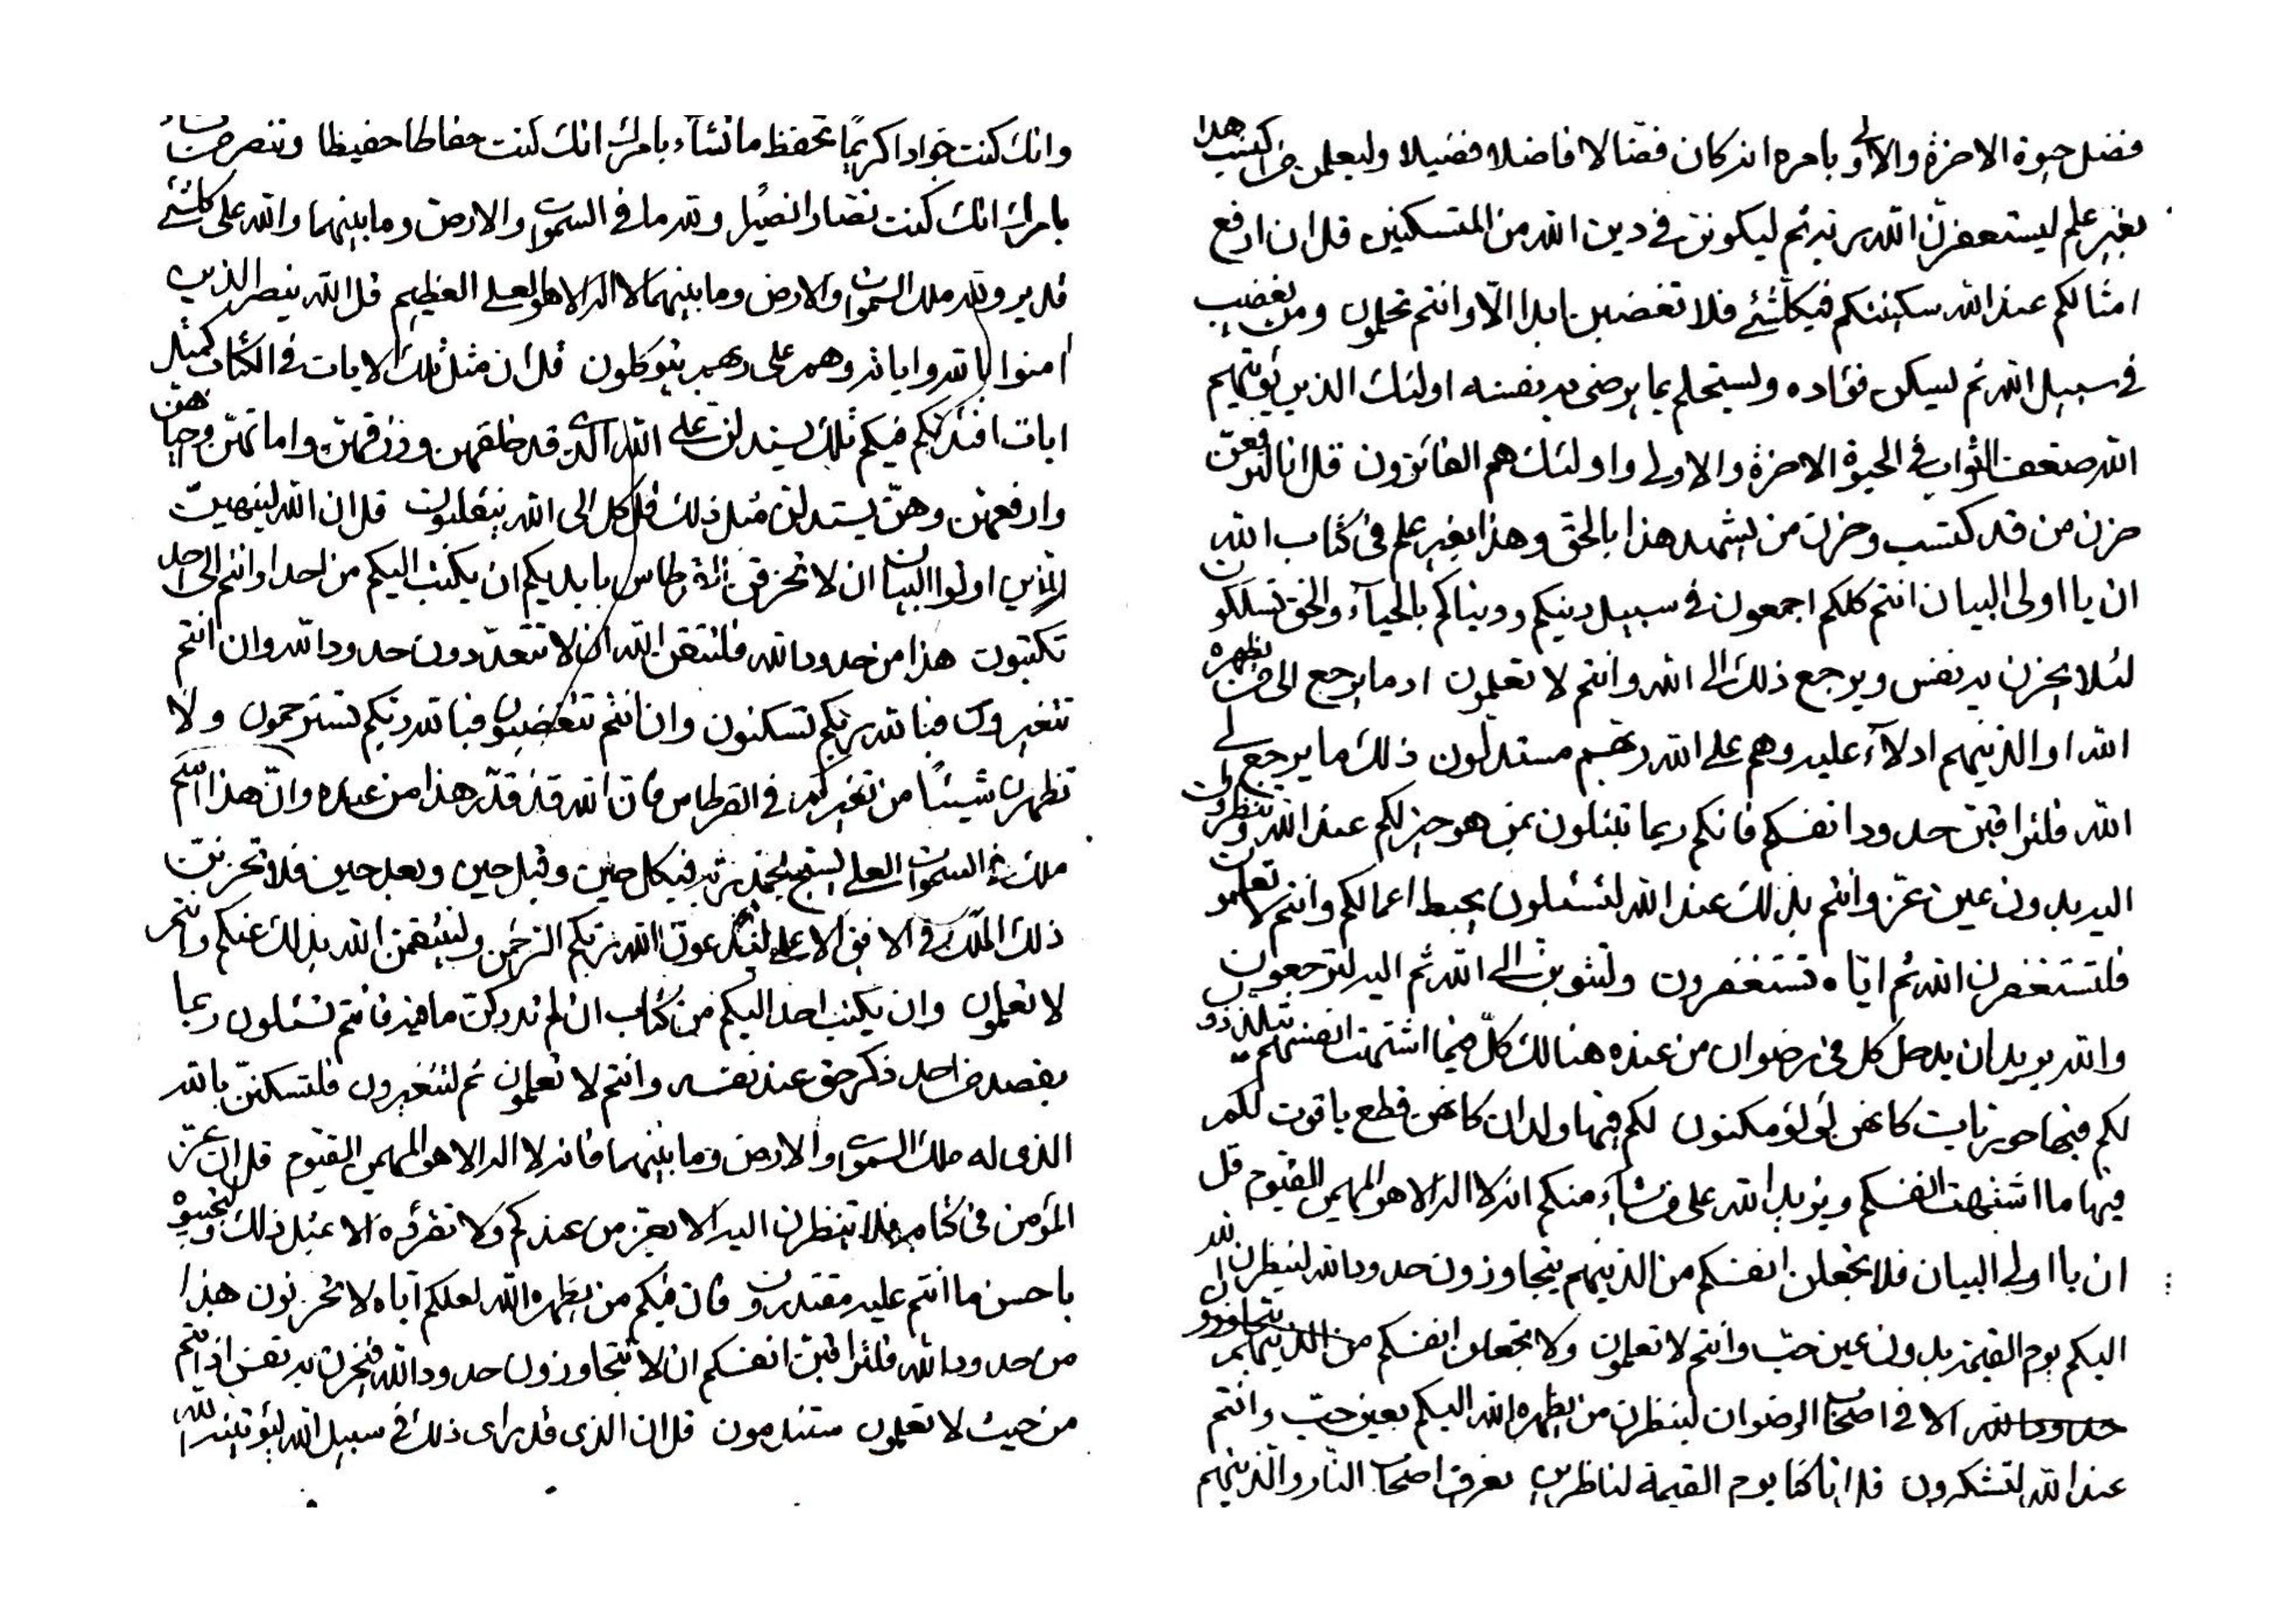 فضل حيوة الاخرة والاولى بامره انه كان فضالا فاضلا فضيلا وليعلمن من اكتسب هذا
بغير علم ليستغفرن الله ربه ثم ليكونن في دين الله من المتسكنين قل ان ارفع
امثالكم عند الله سكينتكم فيكلشئ فلا تغضبن ابدا الا وانتم تحلمون ومن يغضب
في سبيل الله ثم ليسكن فؤاده وليستحلم بما يرضى به نفسه اولئك الذين يؤتيهم
الله ضعف الثواب في الحيوة الاخرة والاولى واولئك هم الفائزون قل انا لنرفعن
حزن من قد كتسب وحزن من يشهد هذا بالحق وهذا بغير علم في كتاب الله
ان يا اولى البيان انتم كلكم اجمعون في سبيل دينكم ودنياكم بالحياء والحق تسلكون
لئلا يحزن به نفس ويرجع ذلك الى الله وانتم لا تعلمون اد ما يرجع الى من يظهره
الله او الذينهم ادلاء عليه وهم على الله ربهم مستدلون ذلك ما يرجع الى
الله فلتراقبن حدود انفسكم فانكم ربما تبتلون بمن هو خير لكم عند الله وتنظرون
اليه بدون عين عز وانتم بذلك عند الله لتسئلون يحبط اعمالكم وانتم لا تعلمون
فلتستغفرن الله ثم اياه تستغفرون ولتتوبن الى الله ثم اليه لترجعون
والله يريد ان يدخل كل في رضوان من عنده هنالك كل فيما اشتهت انفسهم يتلذذون
لكم فيها حوريات كانهن لؤلؤ مكنون لكم فيها ولدان كانهن قطع ياقوت لكم
فيها ما اشتهت انفسكم ويزيد الله على من يشاء منكم انه لا اله الا هو المهيمن القيوم قل
ان يا اولى البيان فلا تجعلن انفسكم من الذينهم يتجاوزون حدود الله لينظرن الله
اليكم يوم القيمة بدون عين حب وانتم لا تعلمون ولا تجعلن انفسكم من الذينهم يتجاوزون
حدود الله الا في اصحاب الرضوان لينظرن من يظهره الله اليكم بعين حب وانتم
عند الله لتشكرون قل انا كنا يوم القيمة لناظرين نعرف اصحاب النار والذينهم
وانك كنت جوادا كريما تحفظ ما تشاء بامرك انك كنت حفاظا حفيظا وتنصر من تشاء
بامرك انك كنت نصارا نصيرا ولله ما في السموات والارض وما بينهما والله على كلشئ
قدير ولله ملك السموات والارض وما بينهما لا اله الا هو العلي العظيم قل الله ينصر الذين
امنوا بالله واياته وهم على ربهم يتوكلون قل ان مثل تلك الايات في الكتاب كمثل
ايات افئدتكم فيكم تلك يستدلن على الله الذى قد خلقهن ورزقهن واماتهن واحياهن
وارفعهن وهن يستدلن مثل ذلك قل كل الى الله ينقلبون قل ان الله لينهين
الذين اوتوا البيان ان لا تخرقن القرطاس بايديكم ان يكتب اليكم من احد او انتم الى احد
تكتبون هذا من حدود الله فلتتقن الله ان لا تتعدون حدود الله وان انتم
تتغيرون فبالله ربكم تسكنون وان انتم تتغضبون فبالله ربكم تسترحمون ولا
تظهرن شيئا من تغيركم في القرطاس فان الله قد قدر هذا من عباده وان هذا اسم
ملك في السموات العلى ليسبح بحمد ربه فيكل حين وقبل حين وبعد حين فلا تحزنن
ذلك الملك في الافق الاعلى لتدعون الله ربكم الرحمن ولينتقمن الله بذلك عنكم وانتم
لا تعلمون وان يكتب احد اليكم من كتاب ان لم تدركن ما فيه فانتم تسئلون ربما
يقصد من احد ذكر حق عند نفسه وانتم لا تعلمون ثم لتتغيرون فلتسكنن بالله
الذى له ملك السموات والارض وما بينهما فانه لا اله الا هو المهيمن القيوم قل ان عز
المؤمن في كتابه فلا تنظرن اليه الا بعز من عندكم ولا تقرئوه الا بمثل ذلك ولتجيبوه
باحسن ما انتم عليه مقتدرون فان فيكم من يظهره الله لعلكم اياه لا تحزنون هذا
من حدود الله فلتراقبن انفسكم ان لا تتجاوزون حدود الله فيحزن به نفس اذ انتم
من حيث لا تعلمون ستندمون قل ان الذى قد يراى ذلك في سبيل الله ليؤتينه الله